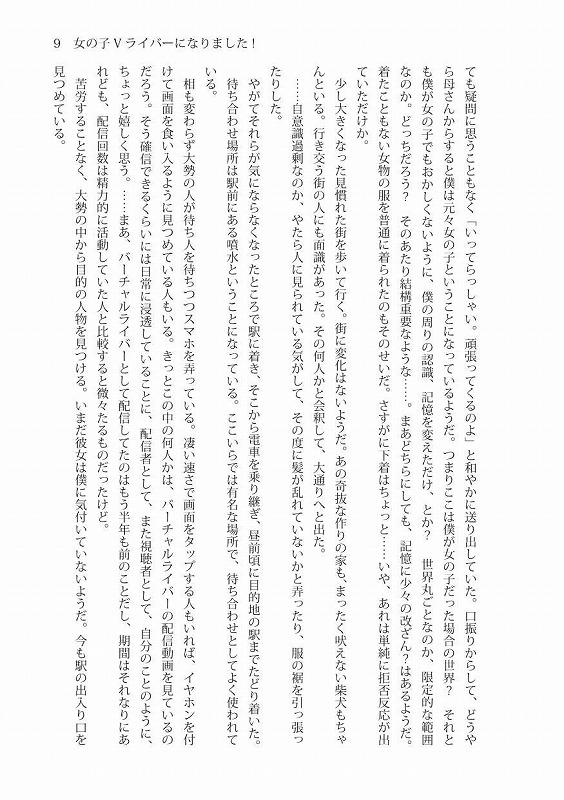 9　女の子Vライバーになりました！
ても疑問に思うこともなく「いってらっしゃい。頑張ってくるのよ」と和やかに送り出していた。口振りからして、どうや
ら母さんからすると僕は元々女の子ということになっているようだ。つまりここは僕が女の子だった場合の世界？　それと
も僕が女の子でもおかしくないように、僕の周りの認識、記憶を変えただけ、とか？　世界丸ごとなのか、限定的な範囲
なのか。どっちだろう？　そのあたり結構重要なような……。まあどちらにしても、記憶に少々の改ざん？はあるようだ。
着たこともない女物の服を普通に着られたのもそのせいだ。さすがに下着はちょっと……いや、あれは単純に拒否反応が出
ていただけか。
少し大きくなった見慣れた街を歩いて行く。街に変化はないようだ。あの奇抜な作りの家も、まったく吠えない柴犬もちゃ
んといる。行き交う街の人にも面識があった。その何人かと会釈して、大通りへと出た。
……自意識過剰なのか、やたら人に見られている気がして、その度に髪が乱れていないかと弄ったり、服の裾を引っ張っ
たりした。
やがてそれらが気にならなくなったところで駅に着き、そこから電車を乗り継ぎ、昼前頃に目的地の駅までたどり着いた。
待ち合わせ場所は駅前にある噴水ということになっている。ここいらでは有名な場所で、待ち合わせとしてよく使われて
いる。
相も変わらず大勢の人が待ち人を待ちつつスマホを弄っている。凄い速さで画面をタップする人もいれば、イヤホンを付
けて画面を食い入るように見つめている人もいる。きっとこの中の何人かは、バーチャルライバーの配信動画を見ているの
だろう。そう確信できるくらいには日常に浸透していることに、配信者として、また視聴者として、自分のことのように、
ちょっと嬉しく思う。……まあ、バーチャルライバーとして配信してたのはもう半年も前のことだし、期間はそれなりにあ
れども、配信回数は精力的に活動していた人と比較すると微々たるものだったけど。
苦労することなく、大勢の中から目的の人物を見つける。いまだ彼女は僕に気付いていないようだ。今も駅の出入り口を
見つめている。